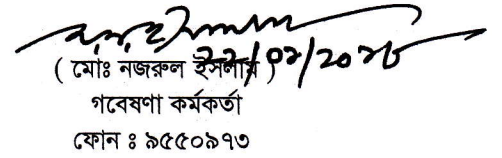 ২২/০২/২০২৮
( মোঃ নজরুল ইসলাম )
গবেষণা কর্মকর্তা
ফোন ঃ ৯৫৫০৯৭৩